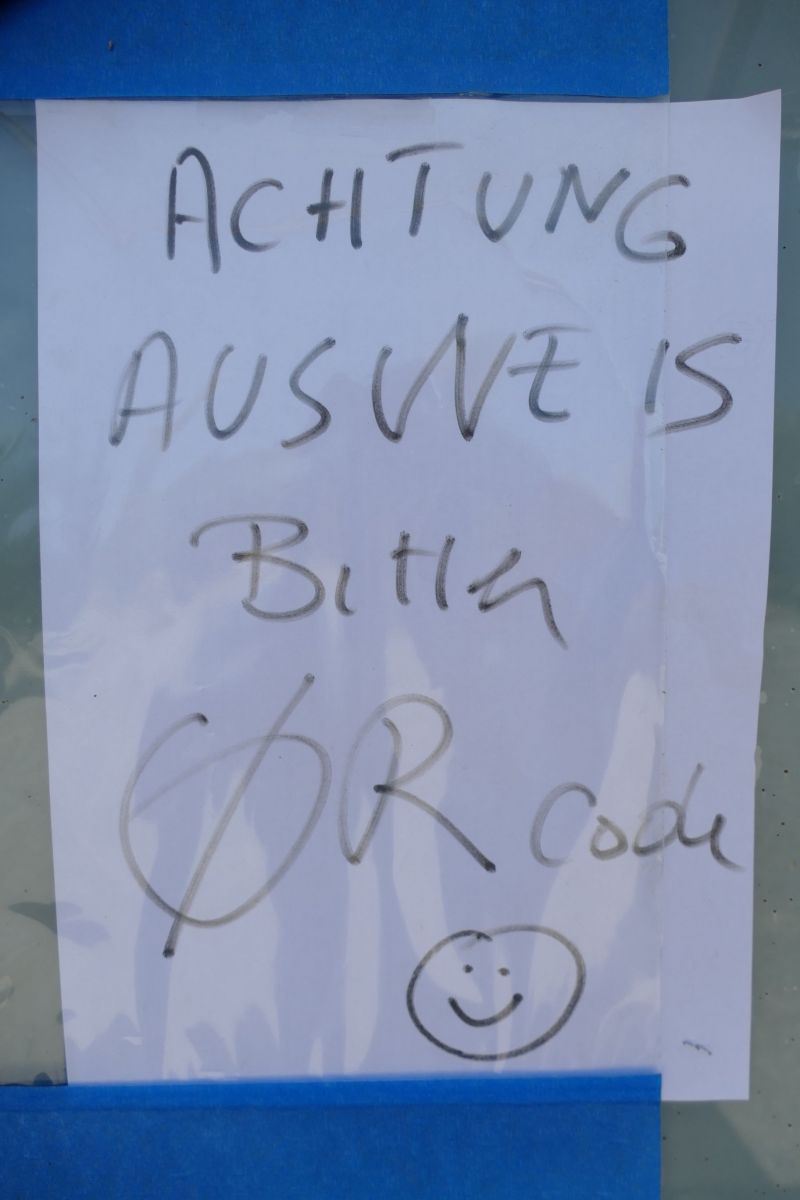 ACHTUNG
AUSWEIS
Bitte
QR Code